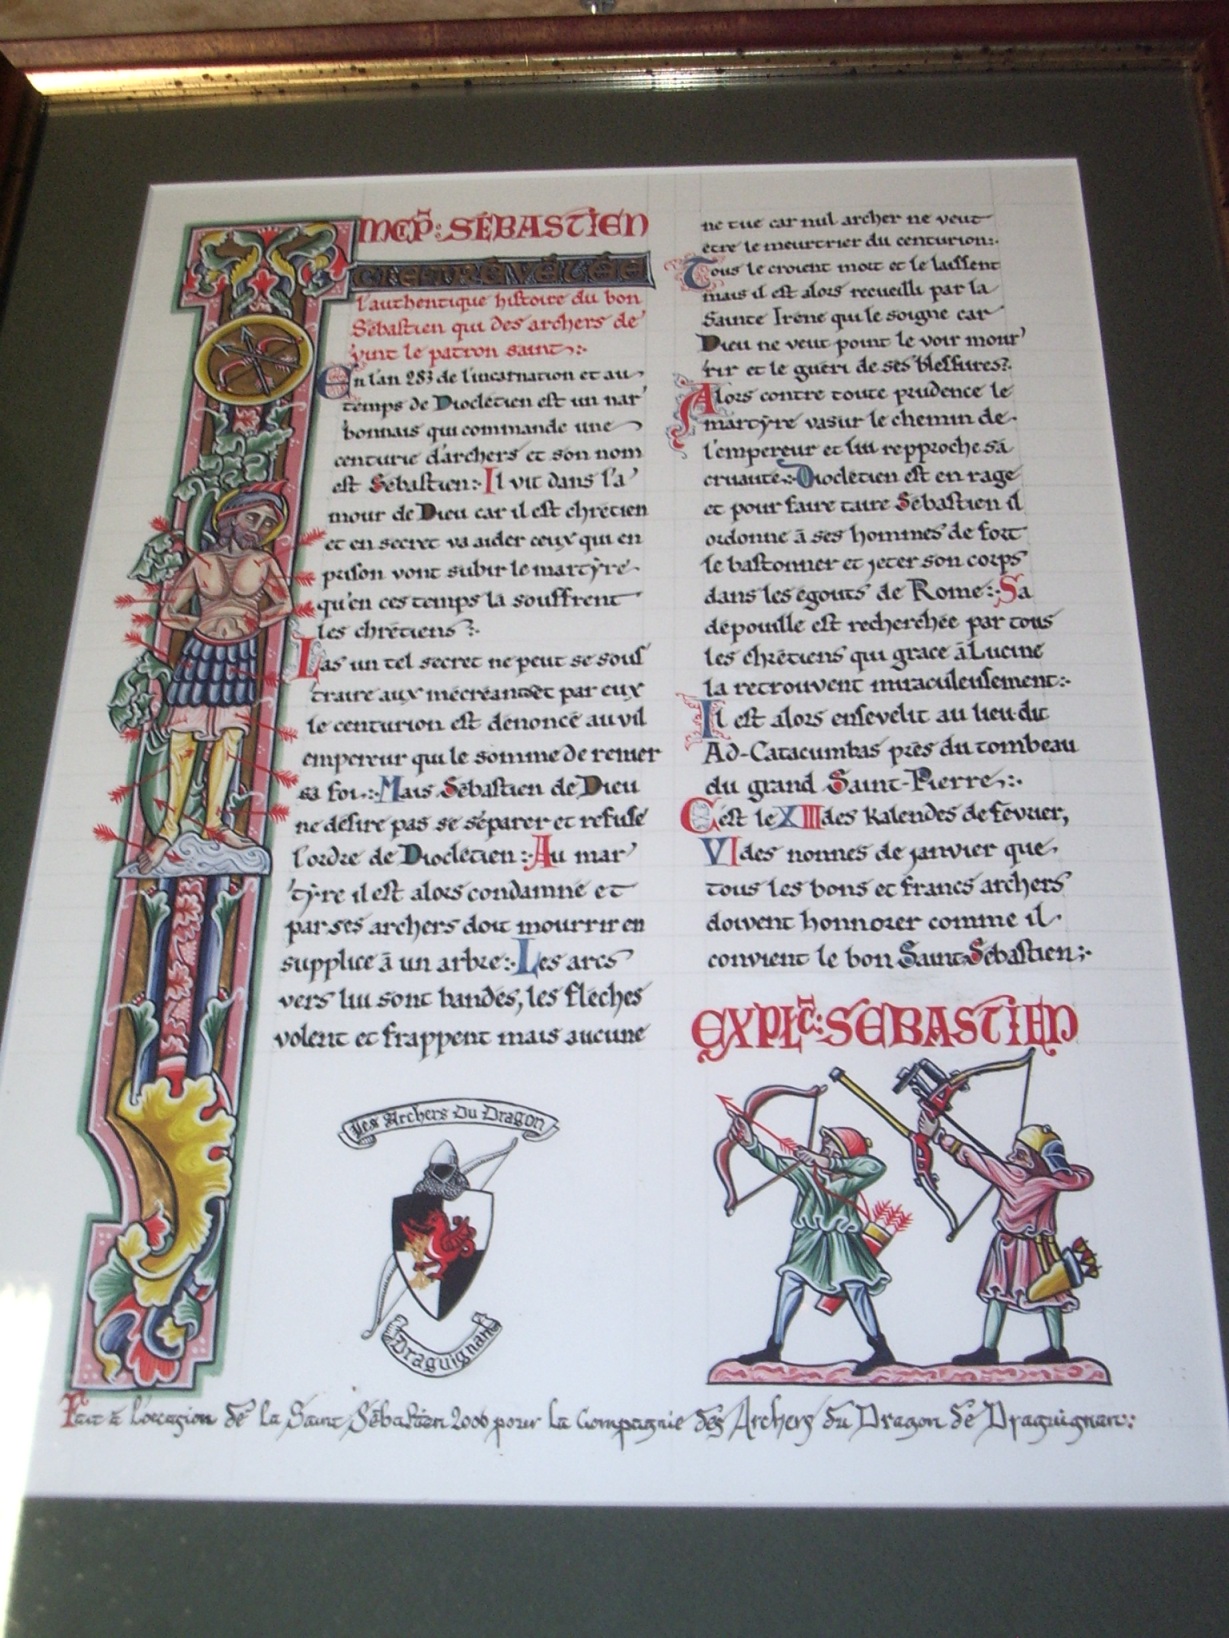 INCP̃: SÉBASTIEN
CI EST RÉVÉLÉE
l'authentique histoire du bon
Sébastien qui des archers de
vint le patron saint:
En l'an 283 de l'incarnation et au
temps de Dioclétien est un nar
bonnais qui commande une
centurie d'archers et son nom
est Sébastien: Il vit dans l'a
mour de Dieu car il est chrétien
et en secret va aider ceux qui en
prison vont subir le martyre
qu'en ces temps là souffrent
les chrétiens:
Las un tel secret ne peut se sous
traire aux mécréants et par eux
le centurion est dénoncé au vil
empereur qui le somme de renier
sa foi: Mais Sébastien de Dieu
ne désire pas se séparer et refuse
l'ordre de Dioclétien: Au mar
tyre il est alors condamné et
par ses archers doit mourrir en
supplice à un arbre: Les arcs
vers lui sont bandés, les flèches
volent et frappent mais aucune
ne tue car nul archer ne veut
être le meurtrier du centurion:
Tous le croient mort et le laissent
mais il est alors recueilli par la
Sainte Irène qui le soigne car
Dieu ne veut point le voir mour
rir et le guéri de ses blessures:
Alors contre toute prudence le
martyre va sur le chemin de
l'empereur et lui repproche sa
cruauté: Dioclétien est en rage
et pour faire taire Sébastien il
ordonne à ses hommes de fort
le bastonner et jeter son corps
dans les égouts de Rome: Sa
dépouille est recherchée par tous
les chrétiens qui grace à Lucine
la retrouvent miraculeusement:
Il est alors ensevelit au lieu dit
Ad-Catacumbas près du tombeau
du grand Saint-Pierre:
C'est le XIII des Kalendes de février,
VI des nonnes de janvier que
tous les bons et francs archers
doivent honnorer comme il
convient le bon Saint Sébastien:
EXPLC̃: SEBASTIEN
Les Archers Du Dragon
Draguignan
Fait à l'occasion de la Saint Sébastien 2006 pour la Compagnie des Archers du Dragon de Draguignan: